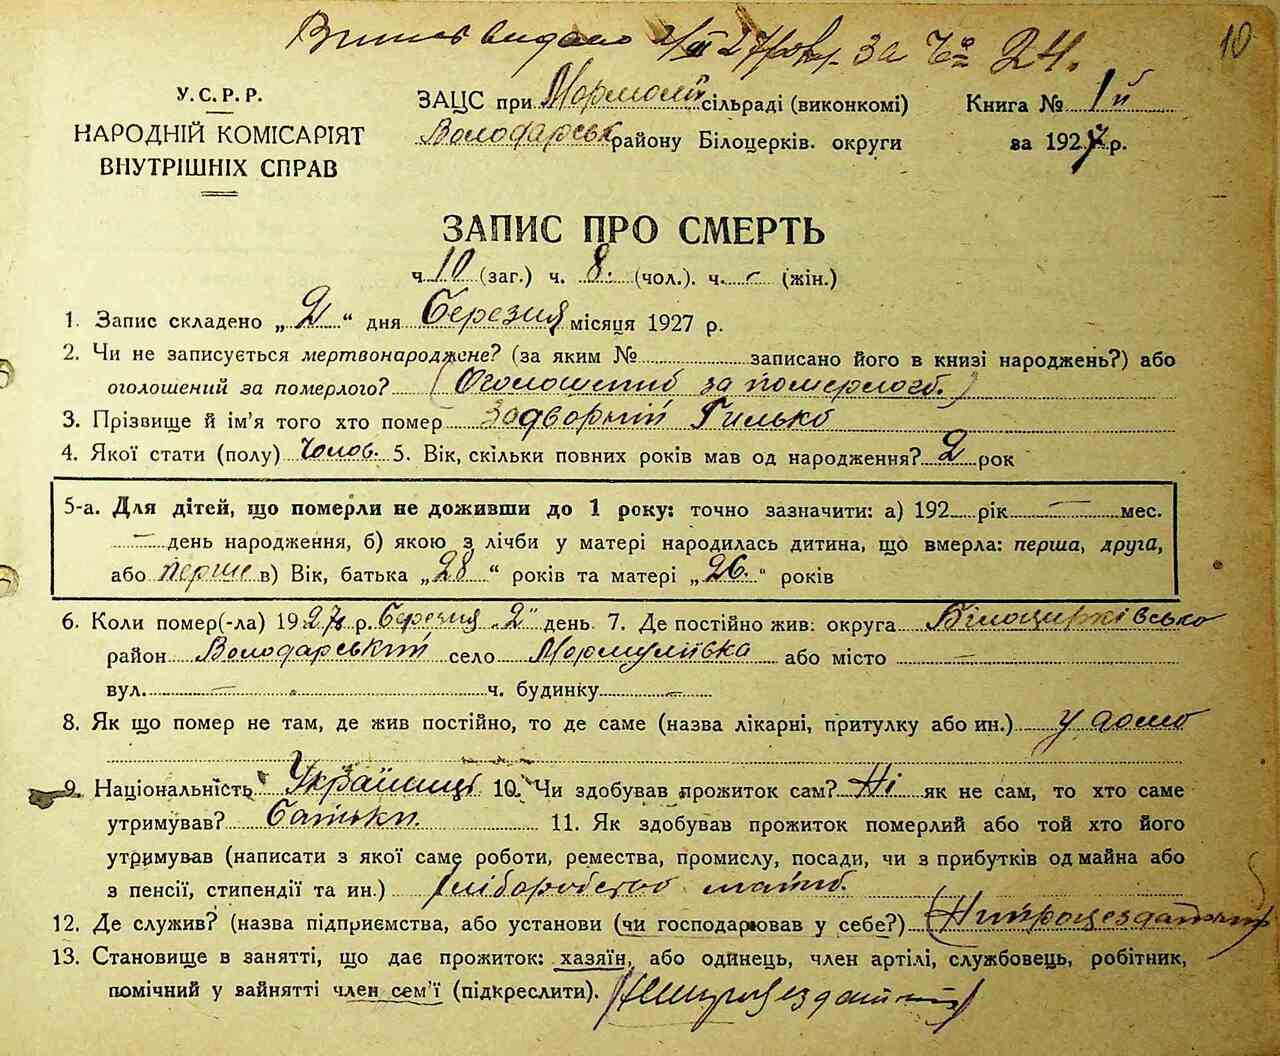 Витяг видано 2/III 27 р. за Ч° 24.
10
У.С.Р.Р.
НАРОДНІЙ КОМІСАРІЯТ
ВНУТРІШНІХ СПРАВ
ЗАЦС при Мормолії сільраді (виконкомі)
Володарськ району Білоцерків. округи
Книга № 1й
за 1927 р.
ЗАПИС ПРО СМЕРТЬ
ч 10 (заг.) ч. 8. (чол.). ч. - (жін.)
1. Запис складено „2“ дня Березня місяця 1927 р.
2. Чи не записується мертвонароджене? (за яким № записано його в книзі народжень?) або
оголошений за померлого? (Оголошений за померлого.)
3. Прізвище й ім'я того хто помер Задворний Гилько
4. Якої стати (полу) Чолов. 5. Вік, скільки повних років мав од народження? 2 рок
5-а. Для дітей, що померли не доживши до 1 року: точно зазначити: а) 192 рік — мес.
— день народження, б) якою з лічби у матері народилась дитина, що вмерла: перша, друга,
або перше в) Вік, батька „28“ років та матері „26.“ років
6. Коли помер(-ла) 1927 р. Березня „2" день 7. Де постійно жив: округа Білоцирківсько
район Володарський село Мормуліївка або місто —
вул. — ч. будинку —
8. Як що помер не там, де жив постійно, то де саме (назва лікарні, притулку або ин.) у дома
9. Національність Українець 10. Чи здобував прожиток сам? Ні як не сам, то хто саме
утримував? Батьки. 11. Як здобував прожиток померлий або той хто його
утримував (написати з якої саме роботи, ремества, промислу, посади, чи з прибутків од майна або
з пенсії, стипендії та ин.) хліборобство
12. Де служив? (назва підприємства, або установи (чи господарював у себе?) (Нипрацездатний)
13. Становище в занятті, що дає прожиток: хазяїн, або одинець, член артілі, службовець, робітник,
помічний у зайнятті член сем'ї (підкреслити). (Нипрацездатний)